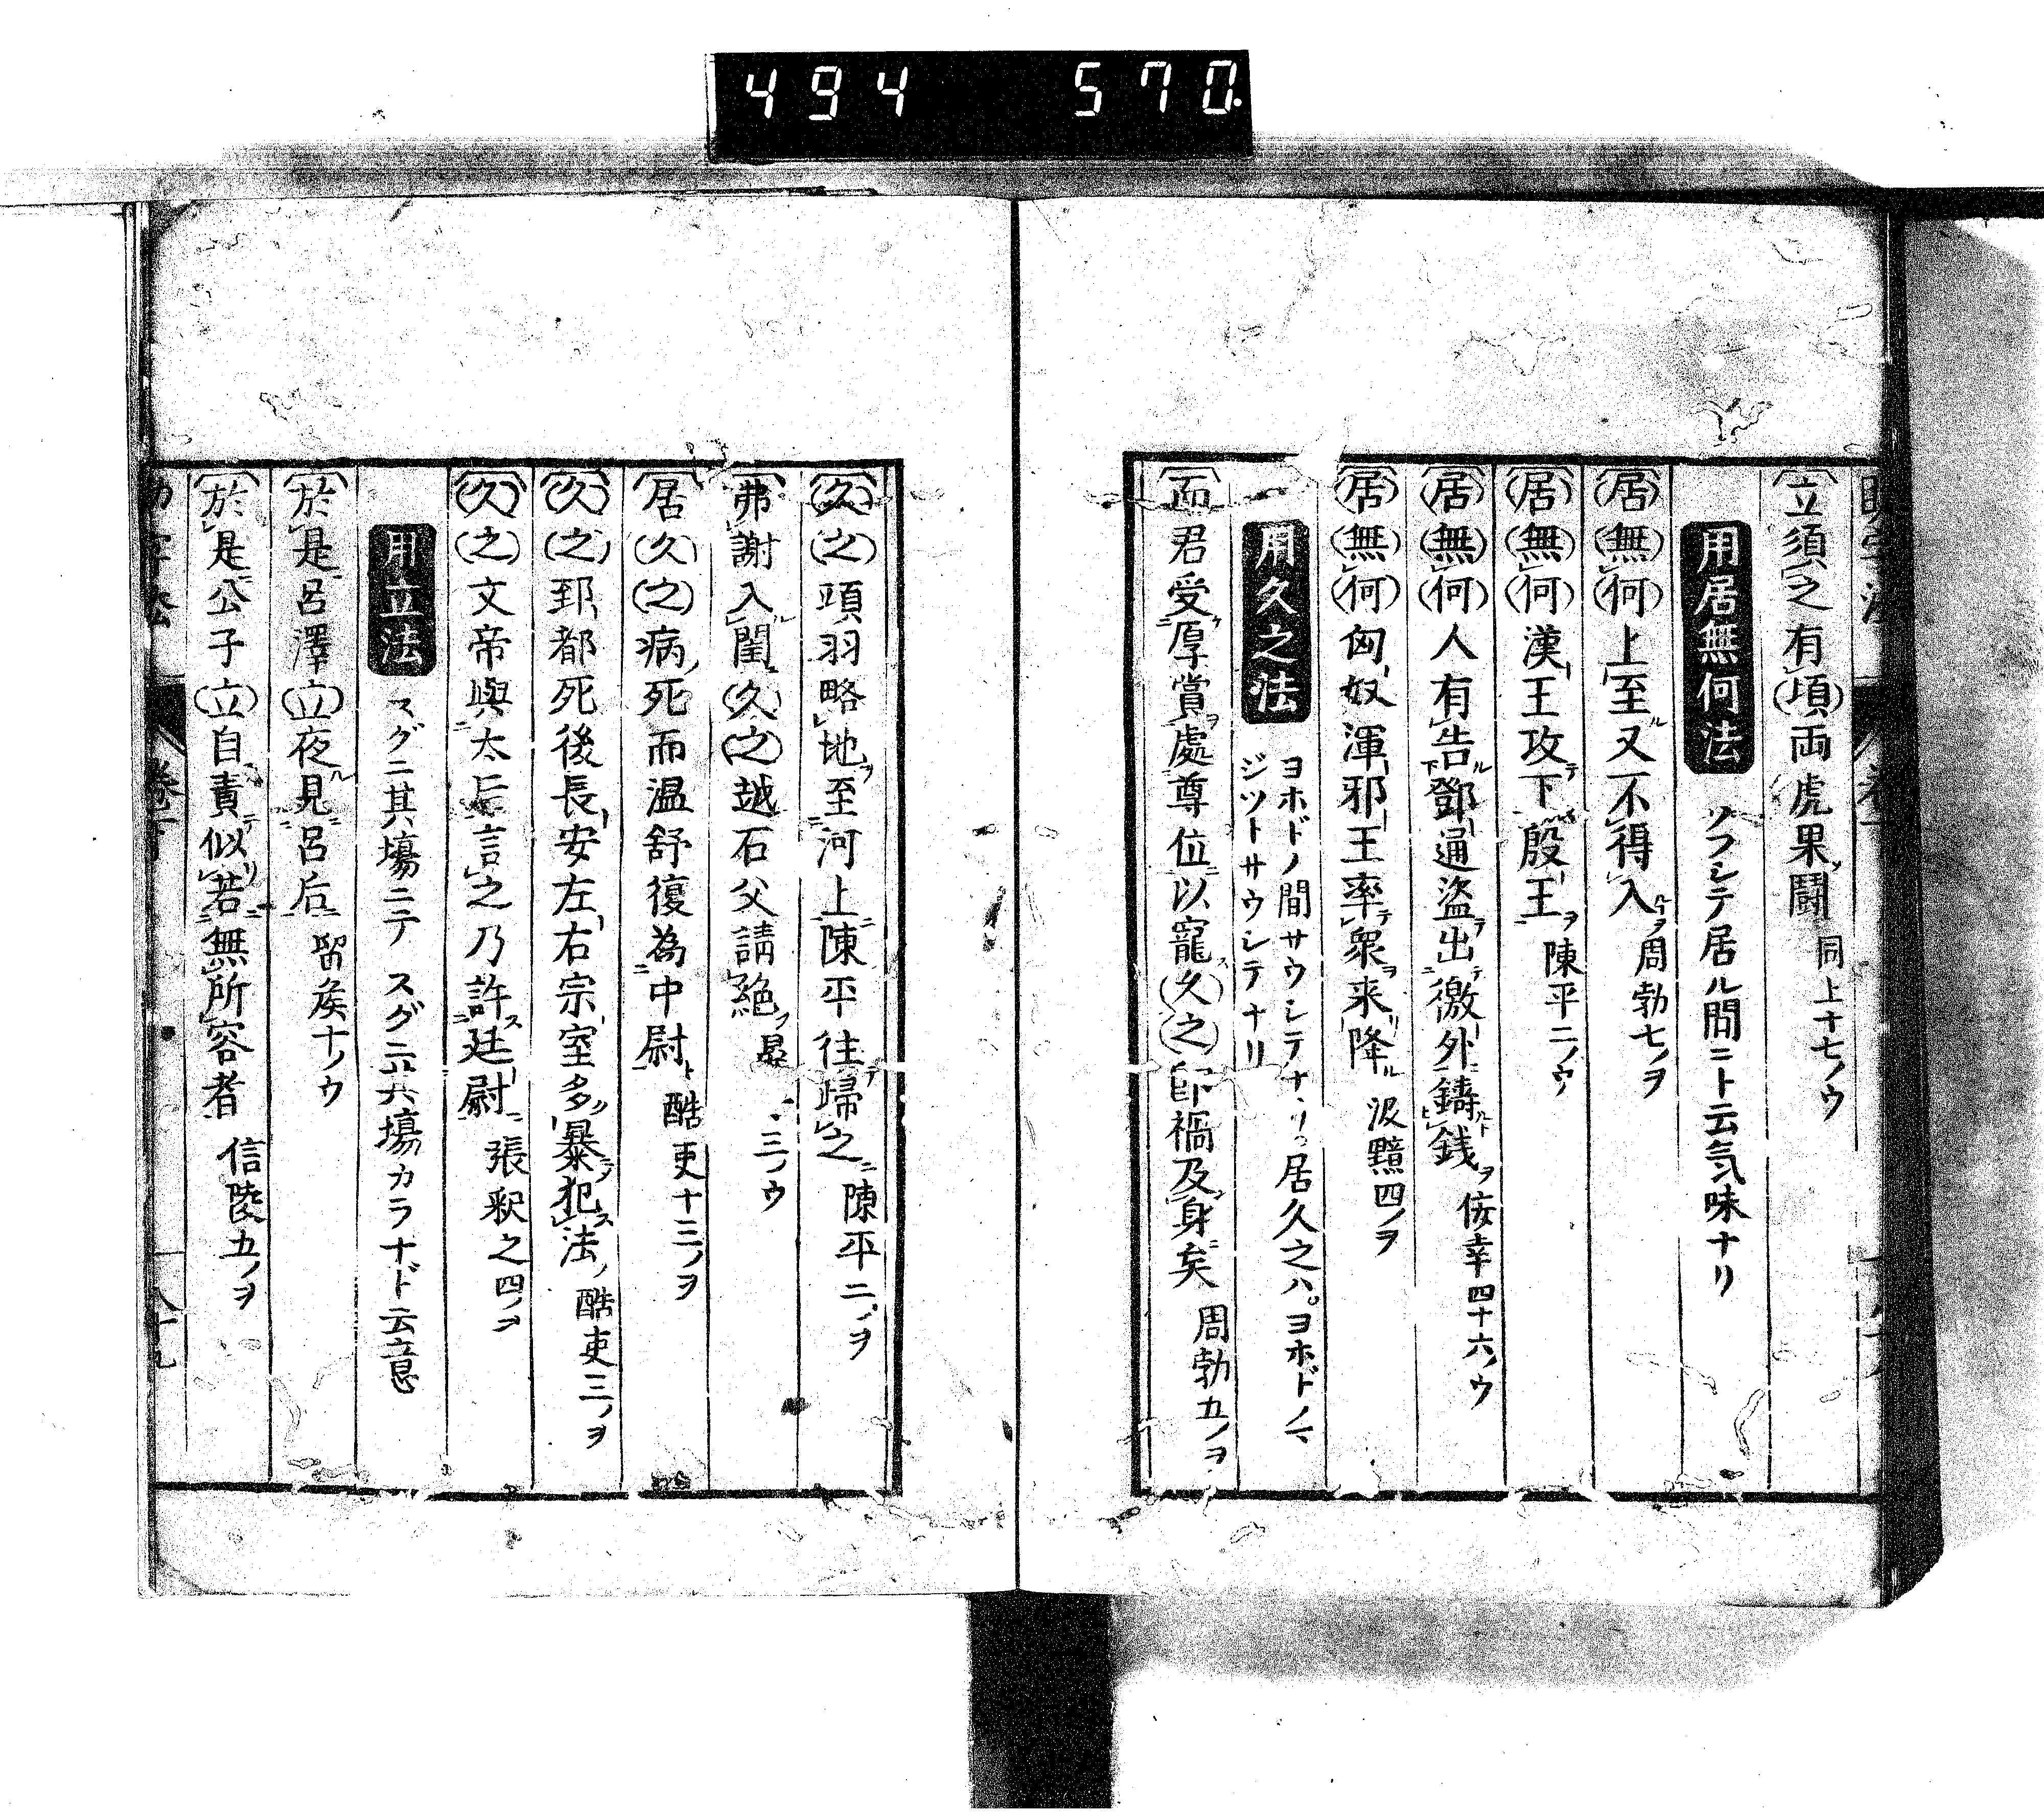 494 570
立須之有項両虎果闘 同上十七ノウ
用居無何法 ソフシテ居ル間ニト云気味ナリ
居無何上至又不得入 周勃七ノヲ
居無何漢王攻下殷王 陳平二ノウ
居無何人有告鄧通盗出徼外鋳銭 佞幸四十六ノウ
居無何匈奴渾邪王率衆来降 汲黯四ノヲ
用久之法 ヨホドノ間サウシテナリ。居久之ハ。ヨホドノマ
ジツトサウシテナリ
而君受厚賞處尊位以寵久之即禍及身矣 周勃五ノヲ
久之項羽略地至河上陳平往歸之 陳平二ノヲ
弗謝入閨久之越石父請絶 三ノウ
居久之病死而温舒復為中尉 酷吏十三ノヲ
久之郅都死後長安左右宗室多暴犯法 酷吏三ノヲ
久之文帝與太后言之乃許廷尉 張釈之四ノヲ
用立法 スグニ其塲ニテ スグニ其塲カラナド云意
於是呂澤立夜見呂后 留矦十ノウ
於是公子立自責似若無所容者 信陵五ノヲ